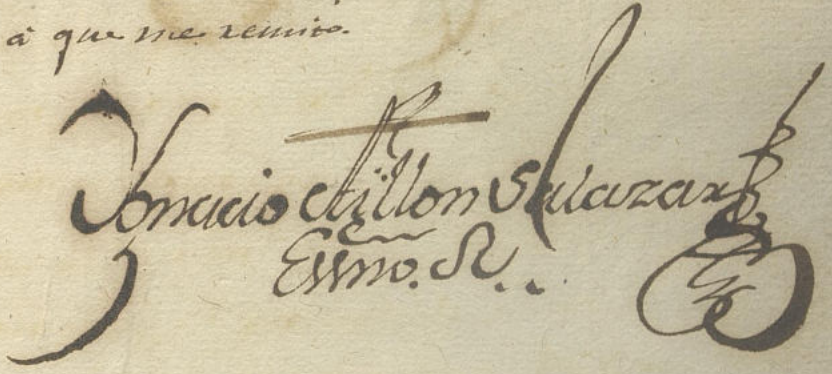 à que me remito.
Ygnacio Aillon Salazar
Essno. R..